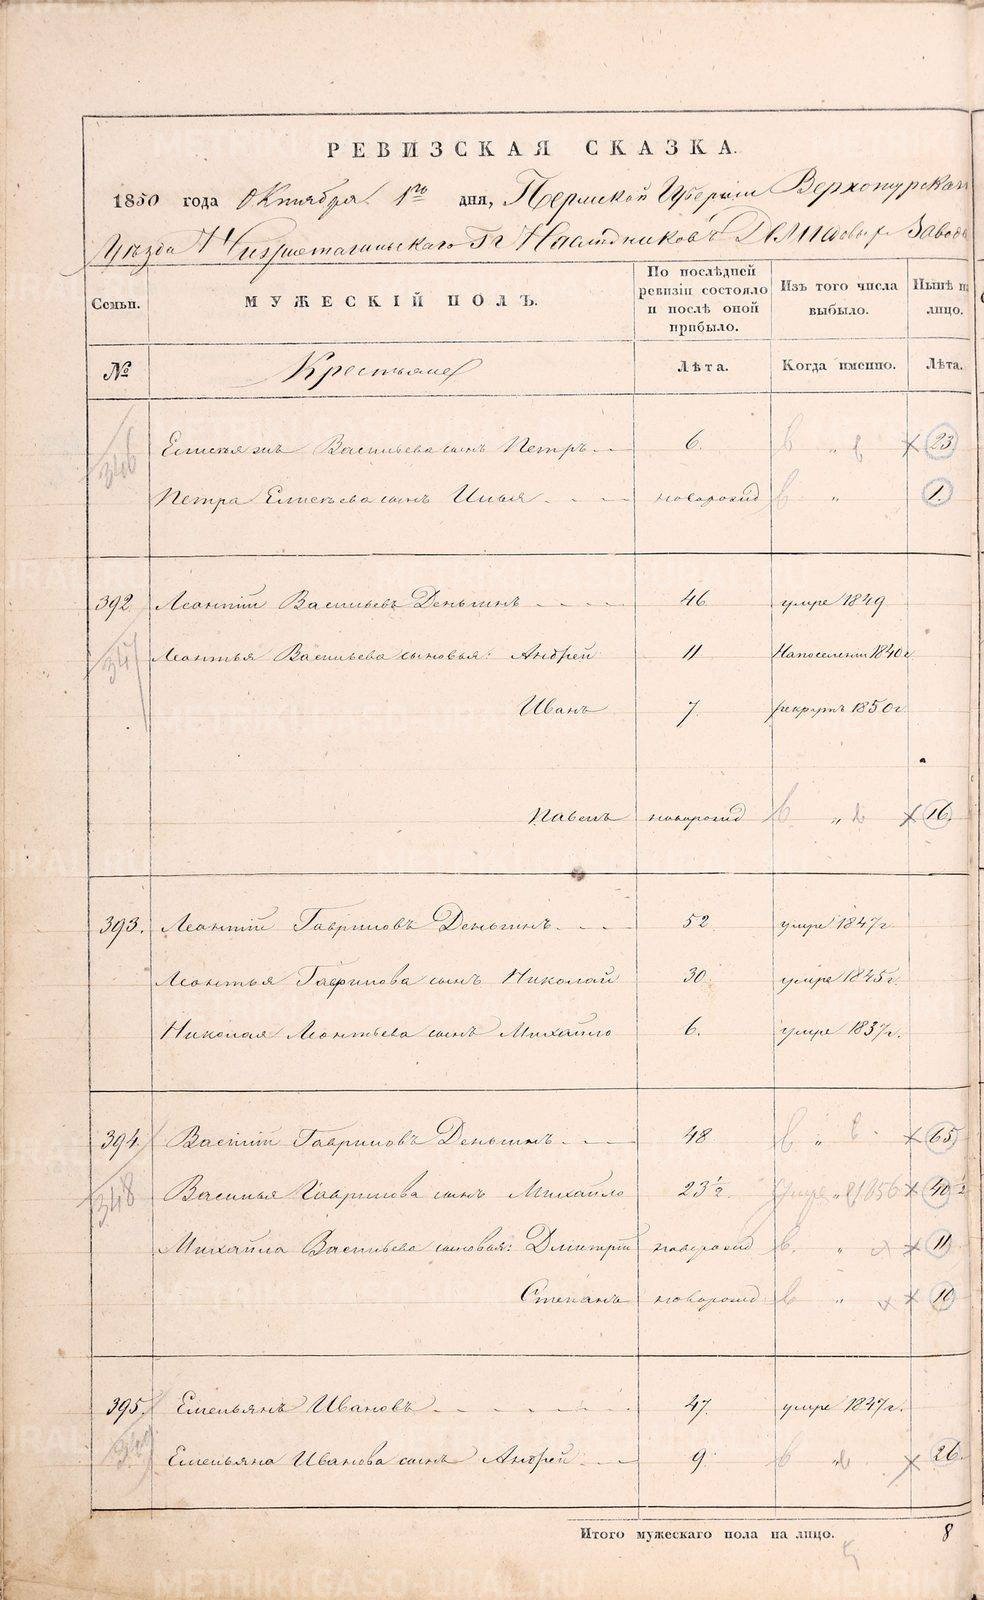 РЕВИЗСКАЯ СКАЗКА.
1850 года Октября 1го дня, Пермской Губерніи Верхотурскаго
Уѣзда Нижнетагильскаго Гг Наслѣдниковъ Демидовыхъ Завода
Семьи. МУЖЕСКІЙ ПОЛЪ. По послѣдней ревизіи состояло и послѣ оной прибыло. Изъ того числа выбыло. Нынѣ на лицо.
№ Крестьяне Лѣта. Когда именно. Лѣта.
346 Васильева сынъ Петръ 6. 23
Петра сынъ Илья новорожд " 1.
392 Леонтій Васильевъ Деньгинъ 46 умре 1849
347 Леонтья Васильева сыновья: Андрей 11 На поселеніи 1840 г
Иванъ 7. рекрутъ 1850 г.
Павелъ новорожд " 16.
393. Леонтій Гавриловъ Деньгинъ 52 умре 1847 г
Леонтья Гаврилова сынъ Николай 30. умре 1845 г.
Николая Леонтьева сынъ Михайло 6. умре 1837 г.
394 Василій Гавриловъ Деньгинъ 48 " 65
348 Василья Гаврилова сынъ Михайло 23½. умре " 1856 40½
Михайла Васильева сыновья: Дмитрій новорожд " 11
Степанъ новорожд " 10
395. Емельянъ Ивановъ 47. умре 1847 г.
349 Емельяна Иванова сынъ Андрей 9. " 26.
Итого мужескаго пола на лицо. 8
METRIKI.GASO-URAL.RU